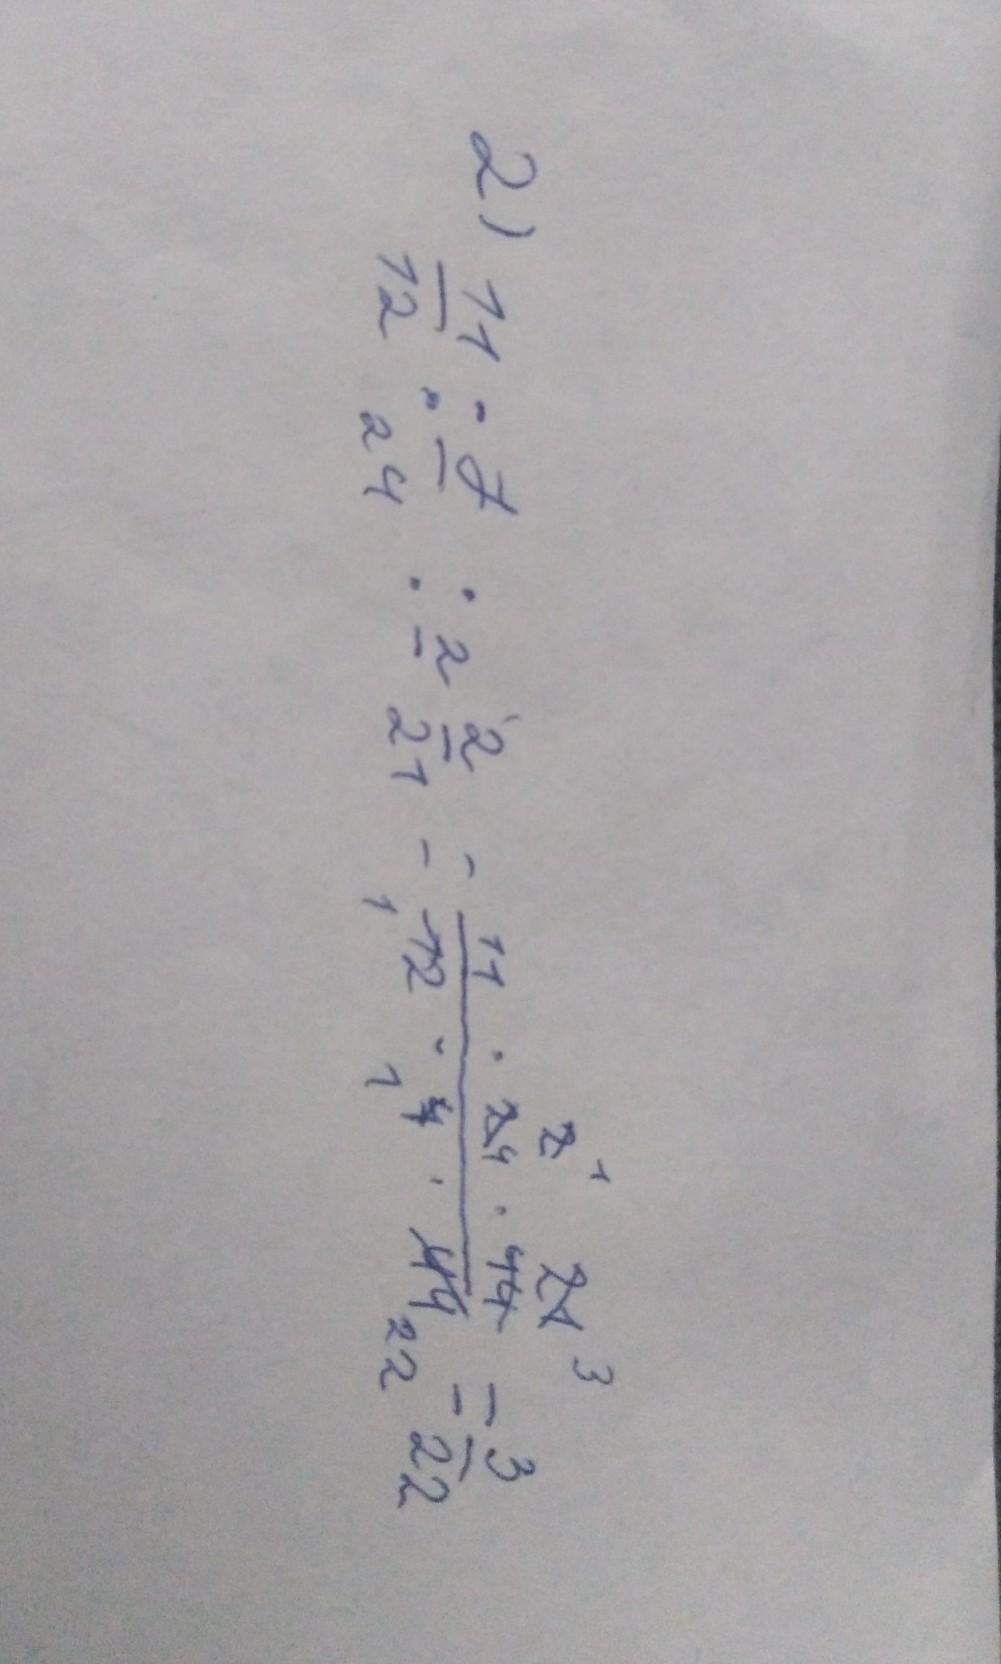 2) 11/12 : 7/24 : 2 2/21 = (11 · 24 · 21)/(12 · 7 · 44) = 3/22